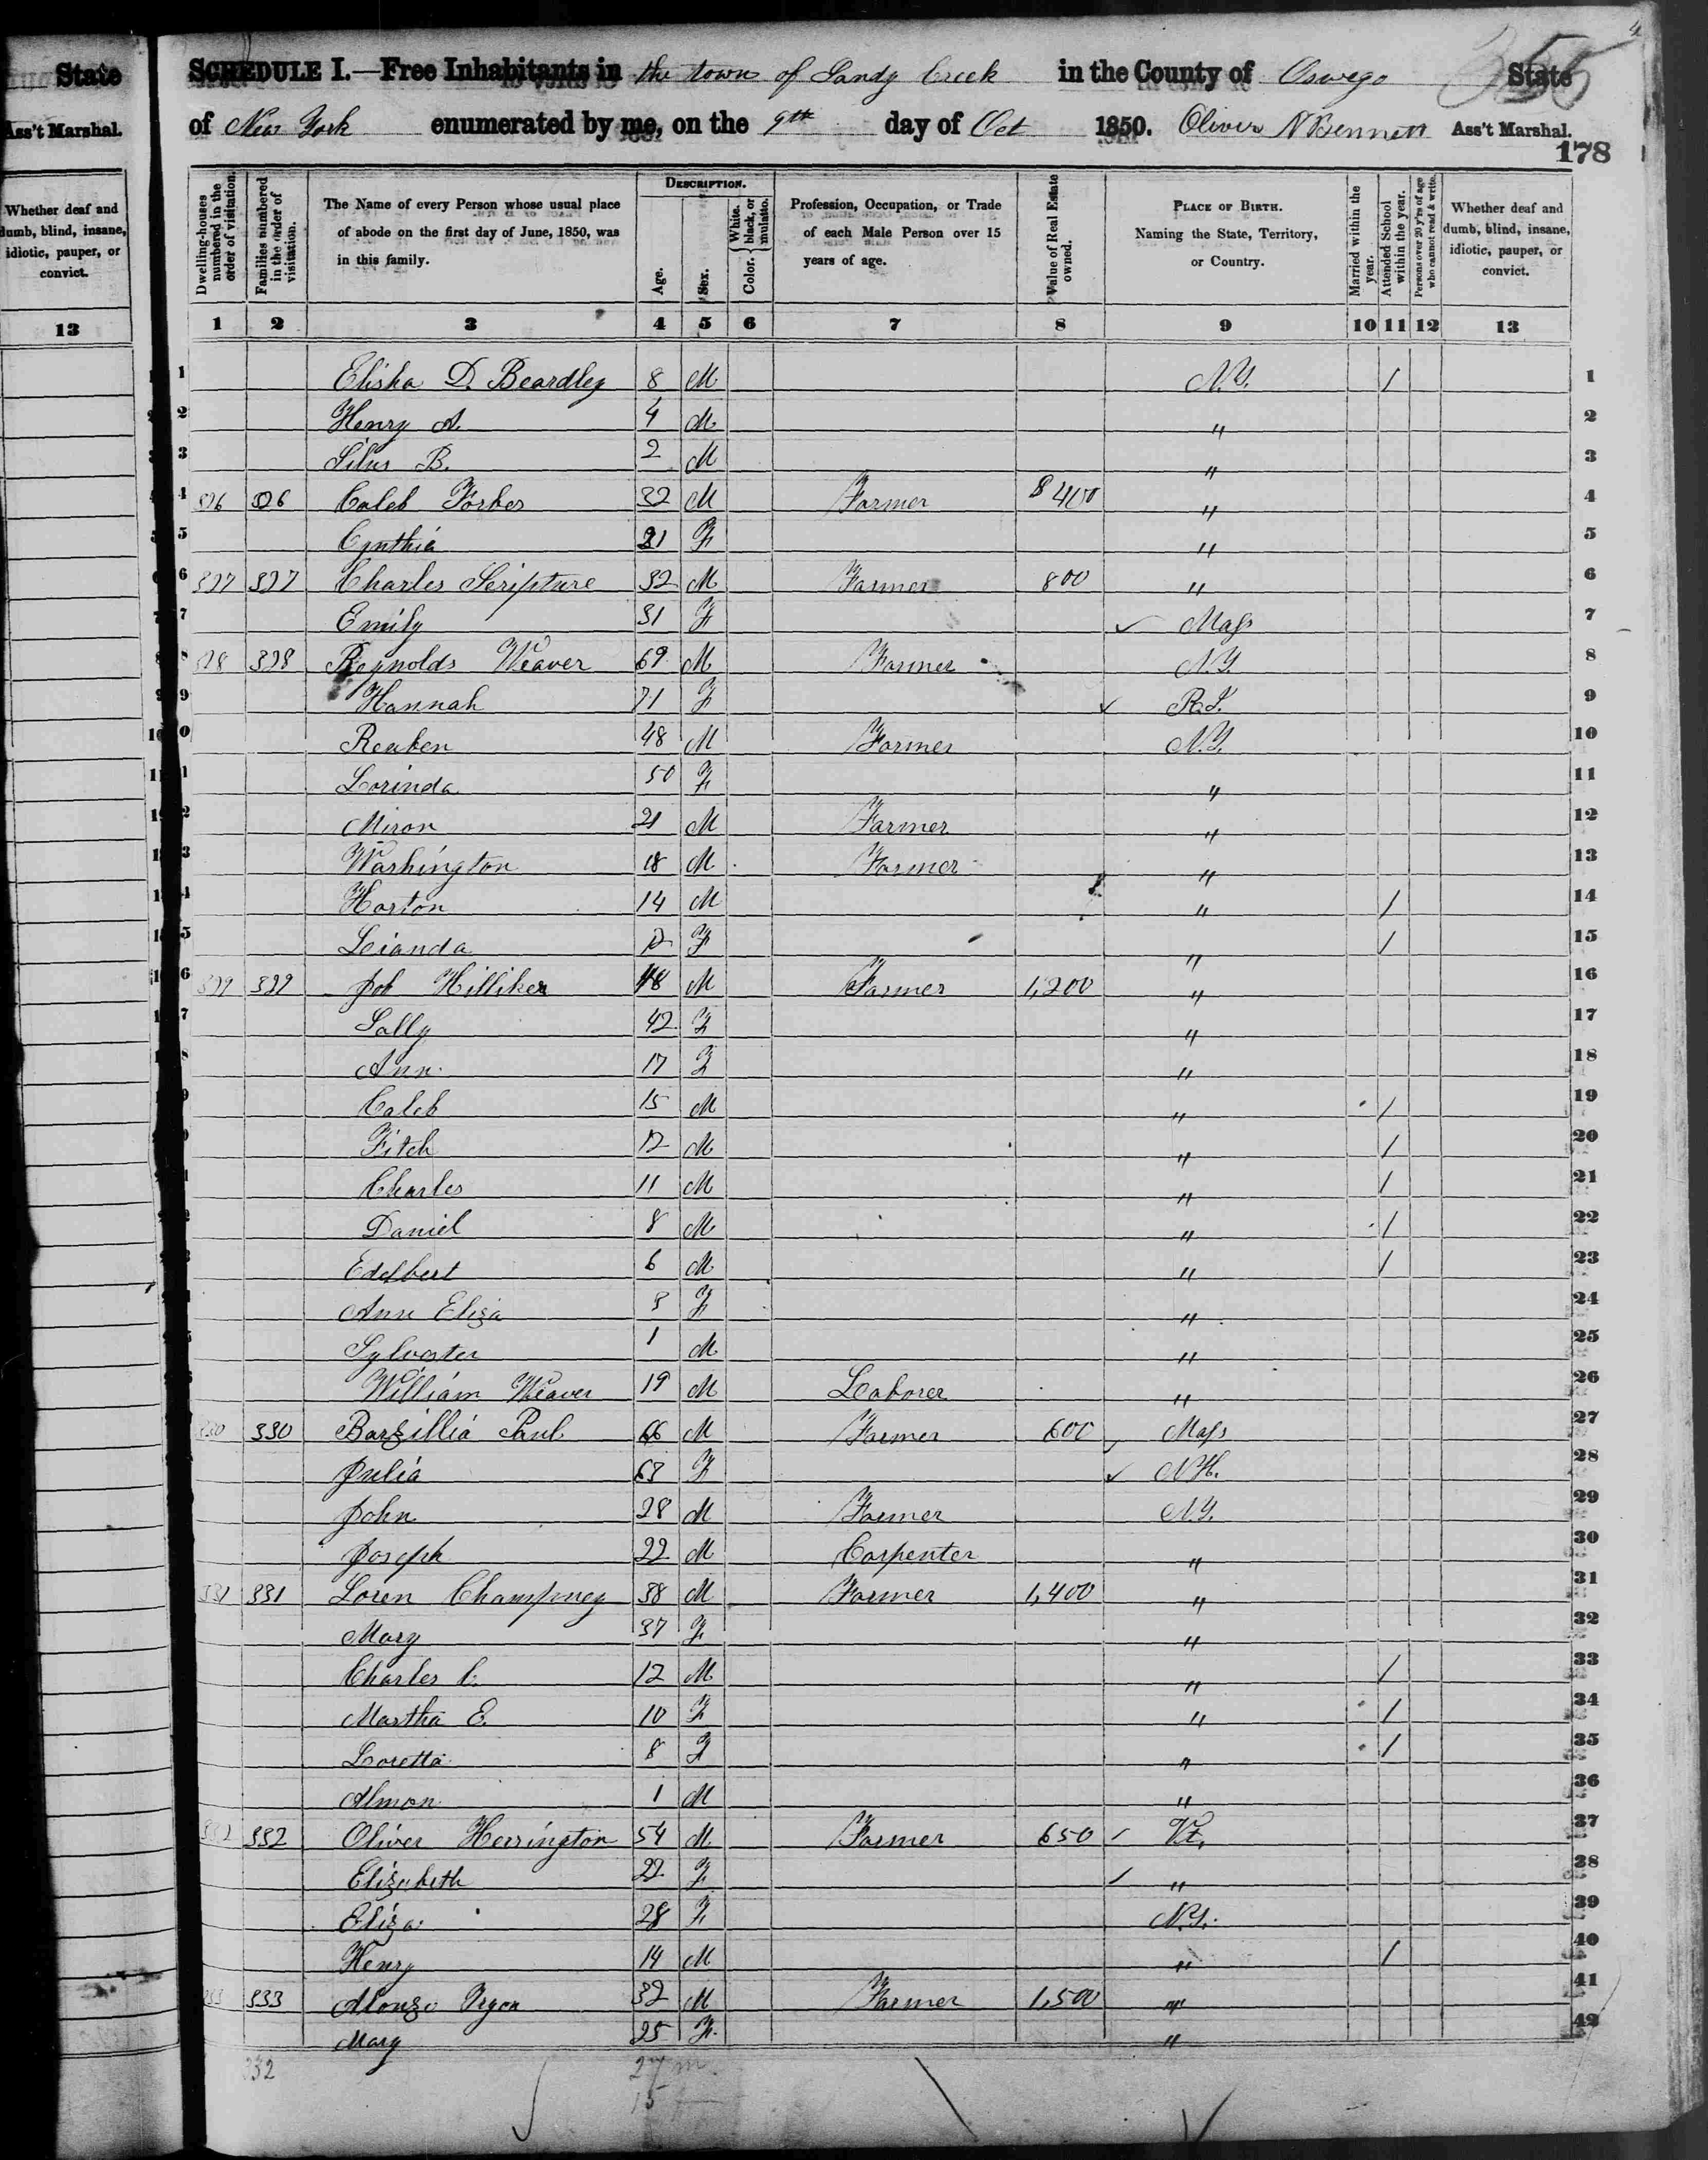 State
Ass't Marshal.
Whether deaf and dumb, blind, insane, idiotic, pauper, or convict.
13
SCHEDULE I.—Free Inhabitants in the town of Sandy Creek in the County of Oswego State
of New York enumerated by me, on the 9th day of Oct 1850. Oliver N Bennett Ass't Marshal.
178
Dwelling-houses numbered in the order of visitation. Families numbered in the order of visitation. The Name of every Person whose usual place of abode on the first day of June, 1850, was in this family. DESCRIPTION. Age. Sex. Color. White, black, or mulatto. Profession, Occupation, or Trade of each Male Person over 15 years of age. Value of Real Estate owned. PLACE OF BIRTH. Naming the State, Territory, or Country. Married within the year. Attended School within the year. Persons over 20 y'rs of age who cannot read & write. Whether deaf and dumb, blind, insane, idiotic, pauper, or convict.
1 2 3 4 5 6 7 8 9 10 11 12 13
1 Elisha D. Beardley 8 M N.Y. / 1
2 Henry A. 4 M " 2
3 Silus B. 2 M " 3
4 326 326 Caleb Forbes 32 M Farmer $ 400 " 4
5 Cynthia 21 F " 5
6 327 327 Charles Scripture 32 M Farmer 800 " 6
7 Emily 31 F ✓ Mass 7
8 328 328 Reynolds Weaver 69 M Farmer N.Y. 8
9 Hannah 71 F ✓ R.I. 9
10 Reuben 48 M Farmer N.Y. 10
11 Lorinda 50 F " 11
12 Miron 21 M Farmer " 12
13 Washington 18 M Farmer " 13
14 Horton 14 M " / 14
15 Leianda 12 F " / 15
16 329 329 Job Hilliker 48 M Farmer 1,200 " 16
17 Sally 42 F " 17
Ann 17 F " 18
Caleb 15 M " / 19
Fitch 12 M " / 20
Charles 11 M " / 21
Daniel 8 M " / 22
Edelbert 6 M " / 23
Ann Eliza 3 F " 24
Sylvester 1 M " 25
William Weaver 19 M Laborer " 26
330 330 Barzillia Paul 66 M Farmer 600 ✓ Mass 27
Julia 63 F ✓ N.H. 28
John 28 M Farmer N.Y. 29
Joseph 22 M Carpenter " 30
331 331 Loren Champney 38 M Farmer 1,400 " 31
Mary 37 F " 32
Charles C. 12 M " / 33
Martha E. 10 F " / 34
Loretta 8 F " / 35
Almon 1 M " 36
332 332 Oliver Herrington 54 M Farmer 650 ✓ Vt. 37
Elizabeth 22 F ✓ " 38
Eliza 28 F N.Y. 39
Henry 14 M " / 40
333 333 Alonzo Tryon 32 M Farmer 1,500 " 41
Mary 25 F " 42
332 27 m
15